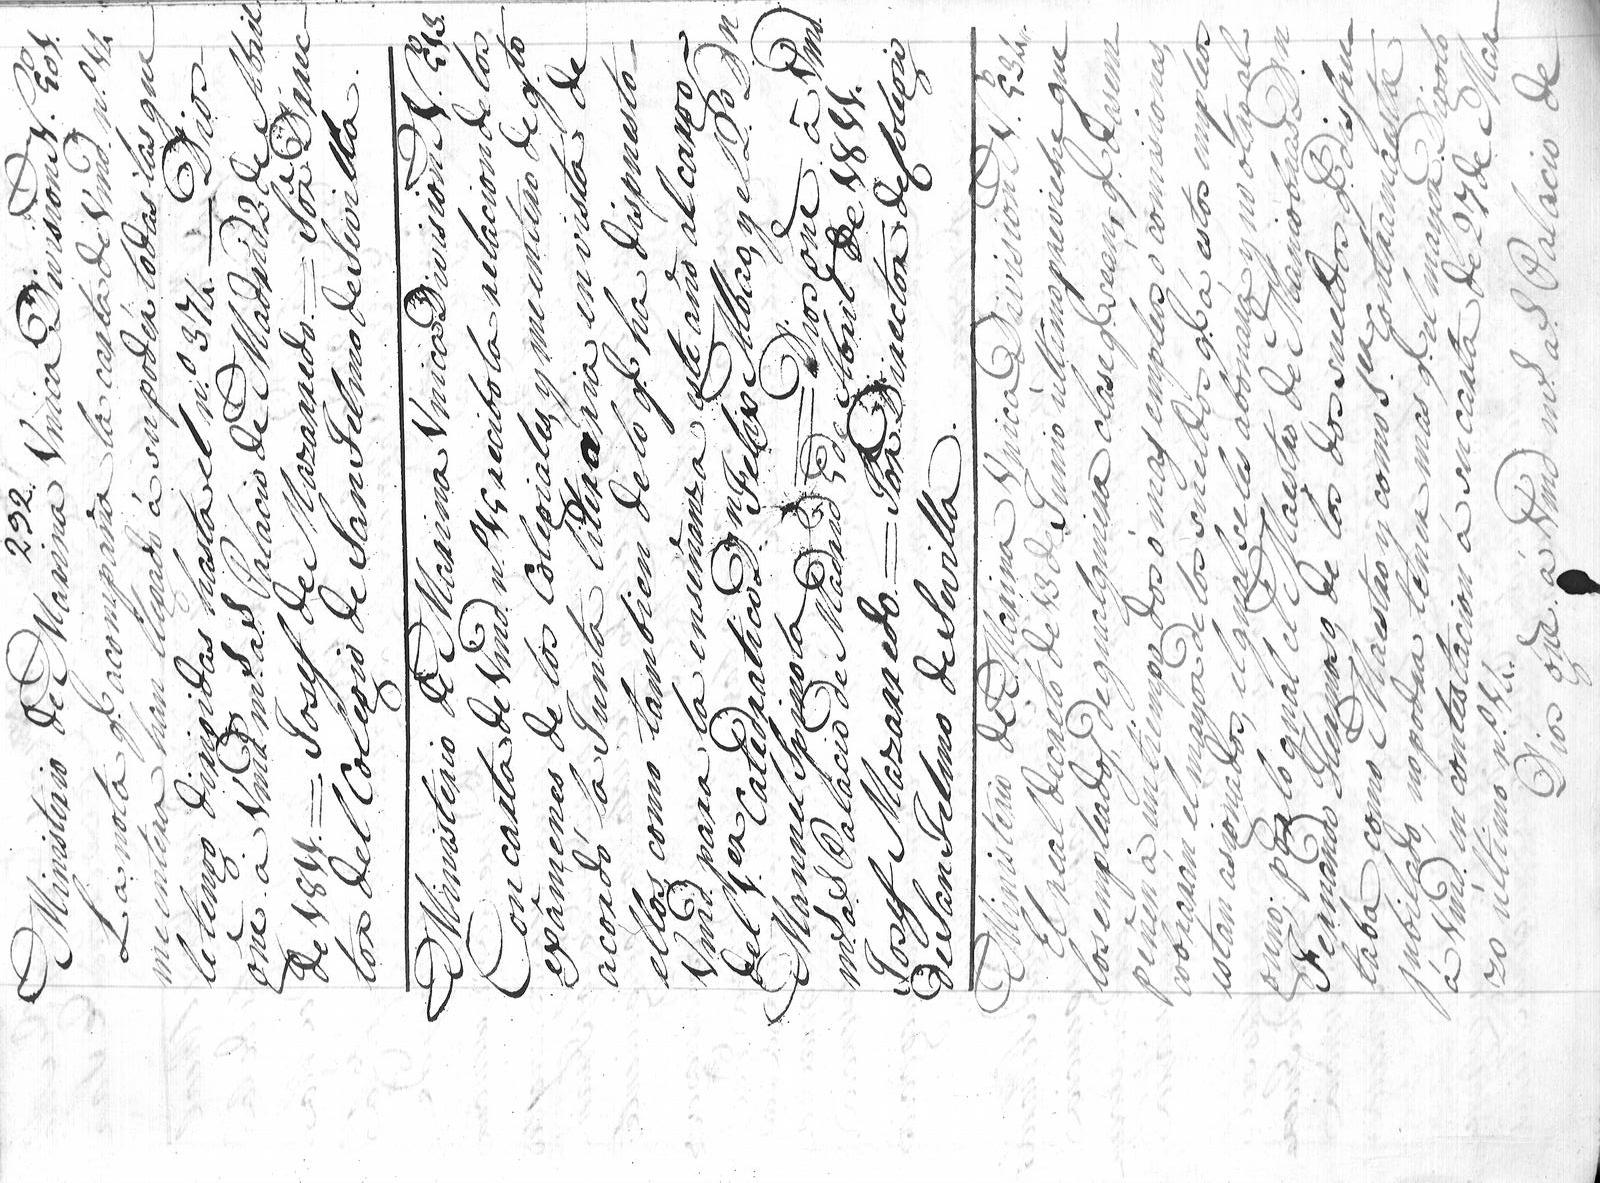 292
Ministerio de Marina Vnica Division N.º 501.
La nota q.e acompaña la carta de Vmd. n.º 44
me entera han llegado á su poder todas las que
le tengo dirigidas hasta el n.º 374. — Dios
gue. á Vmd. m.s a.s Palacio de Madrid 2 de Abril
de 1811. = Josef de Mazarredo = Sor. Direc
tor del Colegio de San Telmo de Sevilla.
Ministerio de Marina Vnica Division N.º 513.
Con carta de Vmd. n.º 45 recibo la relacion de los
exâmenes de los Colegiales, y me entero de q.to
acordó la Junta literaria en vista de
ellos, como tambien de lo q.e ha dispuesto
Vmd. para la enseñanza este año al cargo
del 1.er Catedratico D.n Felix Moco, y el 2.º D.n
Manuel Spinola = Dios gue. â Vmd.
m.s a.s Palacio de Madrid de Abril de 1811.
Josef Mazarredo. = Sor. Director del Colegio
de San Telmo de Sevilla.
Ministerio de Marina Vnica Division N.º 534.
El real decreto de 13 de Junio último previene que
los empleados, de qualquiera clase q.e sean, q.e desem
peñen á un tiempo dos ó mas empleos ó comisiones,
solo el mayor de los sueldos q.e a estos empleos
estan asignados, el qual se les abonará, y no otro al
guno; por lo qual el Maestro de Maniobras D.n
Fernando Alamo, de los dos sueldos q.e disfru
taba como Maestro y como Contramaestre
jubilado, no podia tener mas q.e el mayor. Digolo
á Vmd. en contestacion á su carta de 27 de Mar
zo último n.º 4.
Dios gue. á Vmd. m.s a.s Palacio de